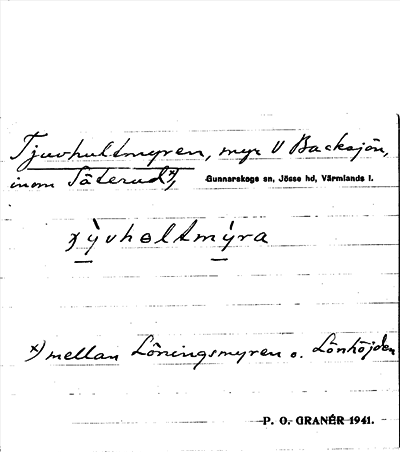 Tjuvhultmyren, myr V Backsjön,
inom Säterud x) Gunnarskogs sn, Jösse hd, Värmlands l.
x) mellan Löningsmyren o. Lönhöjden
P. O. GRANÉR 1941.